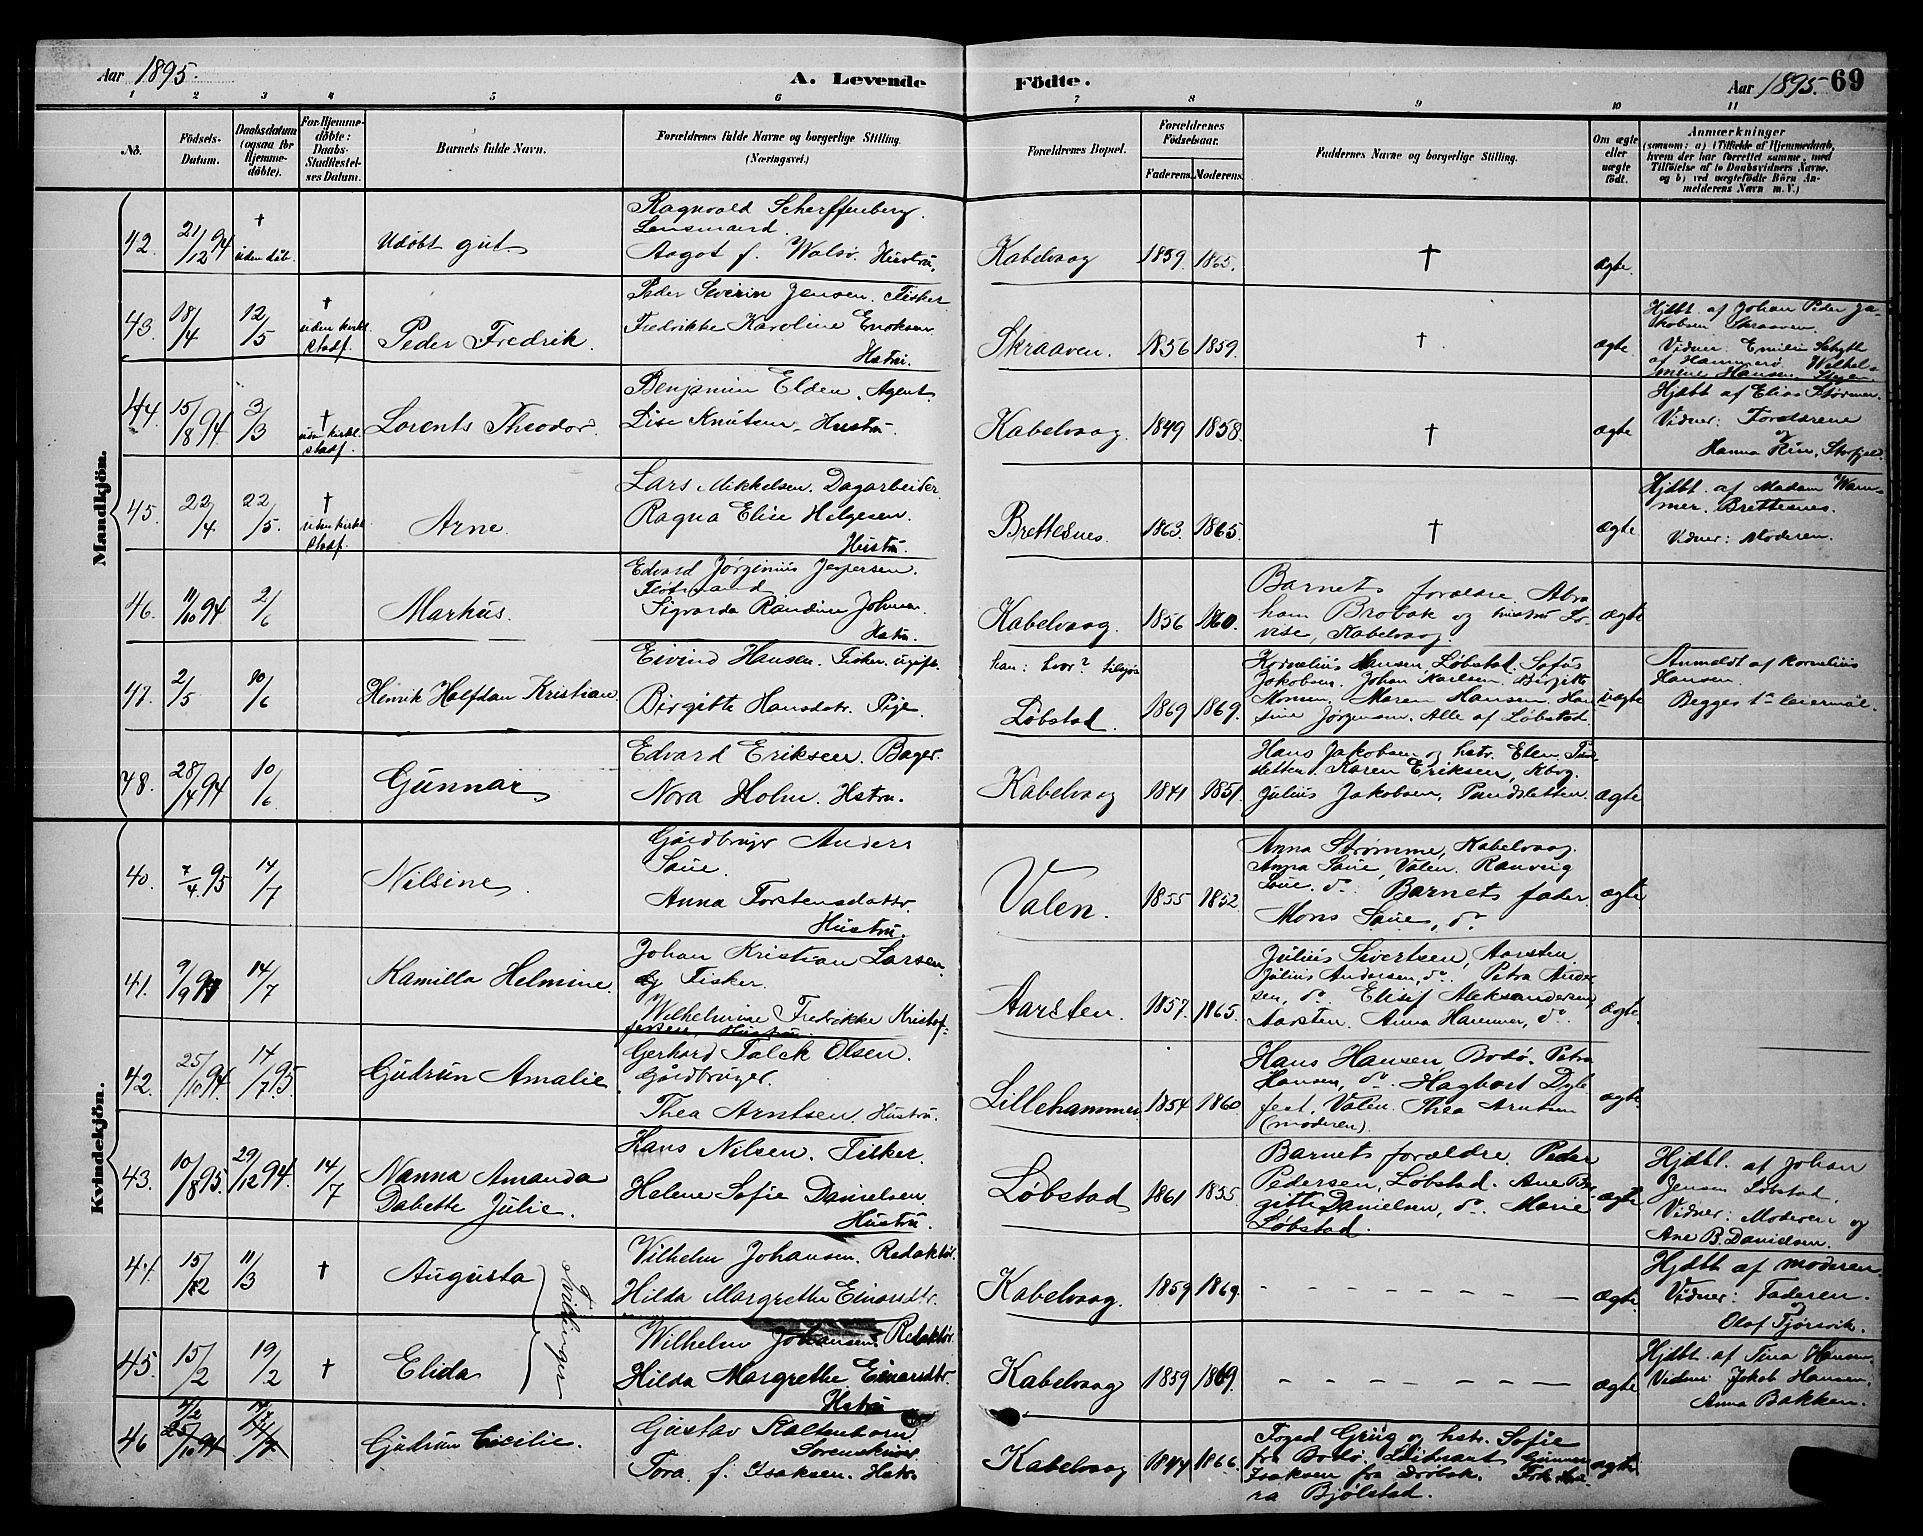 Aar 1895.
A. Levende
Födte.
Aar 1895. 69
1 2 3 4 5 6 7 8 9 10 11
No.
Födsels-Datum.
Daabsdatum (ogsaa for Hjemme-døbte).
For Hjemme-døbte: Daabs-Stadfæstelses Datum.
Barnets fulde Navn.
Forældrenes fulde Navne og borgerlige Stilling. (Næringsvei.)
Forældrenes Bopæl.
Forældrenes Födselsaar.
Faderens. Moderens.
Faddernes Navne og borgerlige Stilling.
Om ægte eller uægte födt.
Anmærkninger
(saasom: a) i Tilfælde af Hjemmedaab, hvem der har forrettet samme, med Tilföielse af to Daabsvidners Navne, og b) ved uægtefödte Börn Anmelderens Navn m. V.)
Mandkjön.
42. 21/12 94 † uden dåb. Udöbt gut.
Ragnvald Scherffenberg.
Lensmand.
Aagot f. Walsö. Hustru.
Kabelvaag 1859. 1865. † ægte.
43. 18/4 12/5 † uden kirkl. stadf. Peder Fredrik.
Peder Severin Jensen. Fisker
Fredrikke Karoline Enoksen
Hstru.
Skraaven. 1856 1859. † ægte
Hjdbt. af Johan Peder Ja-
kobsen Skraaven.
Vidner: Emilie Schytt
af Hammerö Wilhel-
mine Hansen
44. 15/8 94 3/3 † uden kirkl. stadf. Lorents Theodor.
Benjamin Elden. Agent.
Lise Knutsen. Hustru.
Kabelvaag. 1849 1858. † ægte
Hjdbt af Elias Störmer.
Vidner: Forældrene
og
Hanna
45. 22/4 22/5. † uden kirkl. stadf. Arne.
Lars Mikkelsen. Dagarbeider.
Ragna Elise Helgesen.
Hustru.
Brettesnes. 1863. 1865. † ægte.
Hjdbt. af Madam Wam-
mer. Brettesnes.
Vidner: Moderen.
46. 11/10 94 2/6 Markus.
Edvard Jørginius Jespersen.
Sigvarda Randine Johnsen.
Hstru.
Kabelvaag. 1856 1860.
Barnets forældre. Abra
ham Brobak og hustru Lo-
vise, Kabelvaag.
ægte
47. 2/5 10/6 Henrik Halfdan Kristian
Eivind Hansen. Fisker. ugift.
Birgitte Hansdtr. Pige.
han: hvor?
Løbstad. 1869 1869.
Kornelius Hansen, Løbstad. Sofus
Jakobsen. Johan Karlsen. Birgitte
Monsen. Maren Hansen. Han-
sine Jørgensen. Alle af Løbstad.
uægte
Anmeldt af Kornelius
Hansen.
Begges 1ste leiermål.
48. 28/4 94 10/6 Gunnar
Edvard Eriksen. Bager.
Nora Holm. Hstru.
Kabelvaag 1841 1851.
Hans Jakobsen og hstr. Elen Pund-
sletten. Karen Eriksen, Kbvg.
Julius Jakobsen, Pundsletten.
ægte
Kvindekjön.
40. 7/4 95 14/7 Nilsine.
Gårdbruger Anders
Saue.
Anna Torstensdatter.
Hustru.
Valen. 1855 1852.
Anna Strømme, Kabelvaag.
Anna Saue, Valen. Ranveig
Saue. do. Barnets fader
Mons Saue, do.
ægte
41. 9/9 94 14/7 Kamilla Helmine.
Johan Kristian Larsen.
Fisker.
Wilhelmine Fredrikke Kristof-
fersen, Hustru.
Aarsten. 1857. 1865.
Julius Sivertsen, Aarsten.
Julius Andersen, do. Petra Ander-
sen, do. Elisef Aleksandersen
Aarsten. Anna Hammer, do.
ægte.
42. 25/10 94. 14/7 95. Gudrun Amalie
Gerhard Falck Olsen.
Gårdbruger.
Thea Arntsen. Hustru.
Lillehammer 1854 1860
Hans Hansen, Bodö. Petra
Hansen, do. Hagbart Dyb-
fest, Valen. Thea Arntsen
(moderen).
ægte.
43. 10/8 95. 29/12 94. 14/7 Nanna Amanda
Dabette Julie.
Hans Nilsen. Fisker.
Helene Sofie Danielsen
Hustru.
Løbstad 1861 1855
Barnets forældre. Peder
Pedersen, Løbstad. Ane Bir-
gitte Danielsen, do. Marie
Løbstad.
ægte
Hjdbt. af Johan
Jensen Løbstad.
Vidner: Moderen og
Ane B. Danielsen.
44. 15/12 11/3 † Augusta
Tvillinger
Vilhelm Johansen. Redaktör.
Hilda Margrethe Einarsdtr.
Kabelvaag. 1859 1869. ægte.
Hjdbt af moderen.
Vidner: Faderen.
og
Olaf Fjörtvik.
45. 15/2 19/2 † Elida
Wilhelm Johansen. Redaktör.
Hilda Margrethe Einarsdtr.
Hstru
Kabelvaag 1859 1869. ægte
Hjdbt. af Tina Hansen.
Vidner: Jakob Hansen.
Anna Bakken.
46 Gudrun Cecilie.
Gustav Kaltenborn
Sorenskriver
Tora f. Isaksen. Hstru
Kabelvaag 1844 1866.
Foged Grüg og hstr. Sofie
fra Bodø. Löitnant Gunnar
Isaksen fra Drøbak.
ra Bjølstad.
ægte